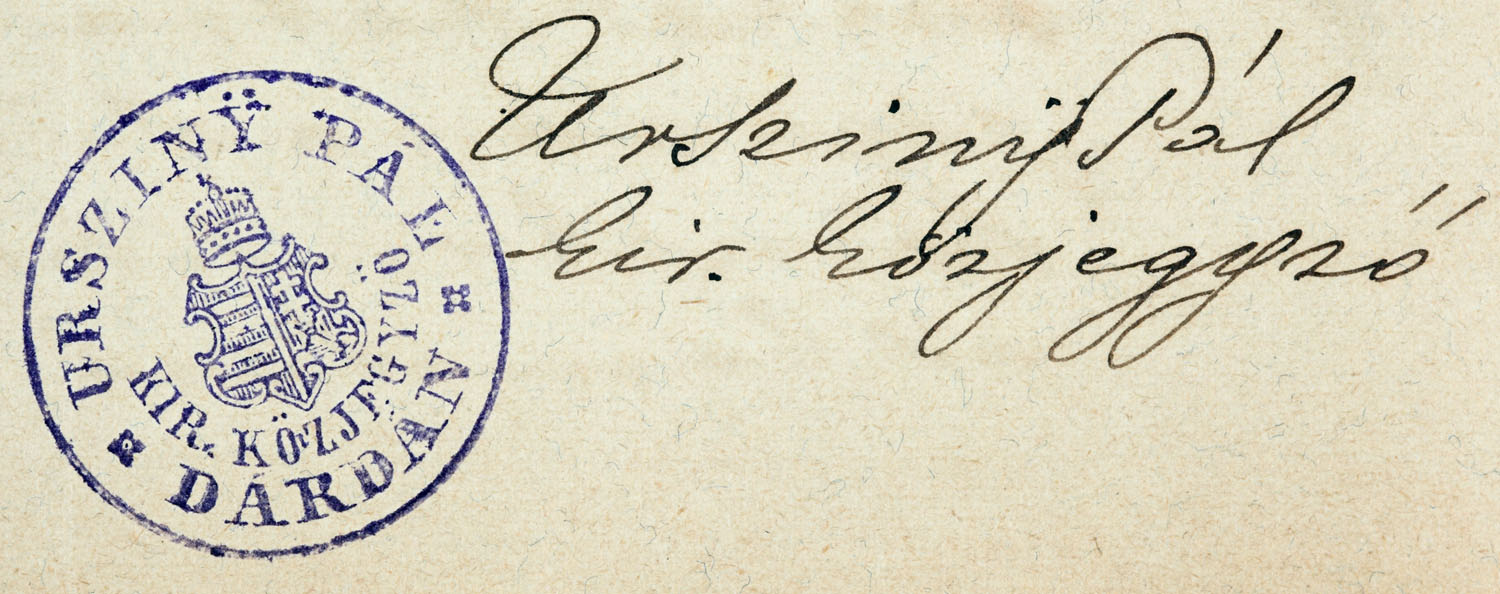 URSZINŸ PÁL
KIR. KÖZJEGYZÖ
DÁRDÁN
Ursziny Pál
kir. közjegyző